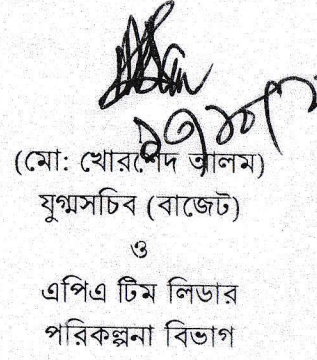 (মো: খোরশেদ আলম)
যুগ্মসচিব (বাজেট)
ও
এপিএ টিম লিডার
পরিকল্পনা বিভাগ